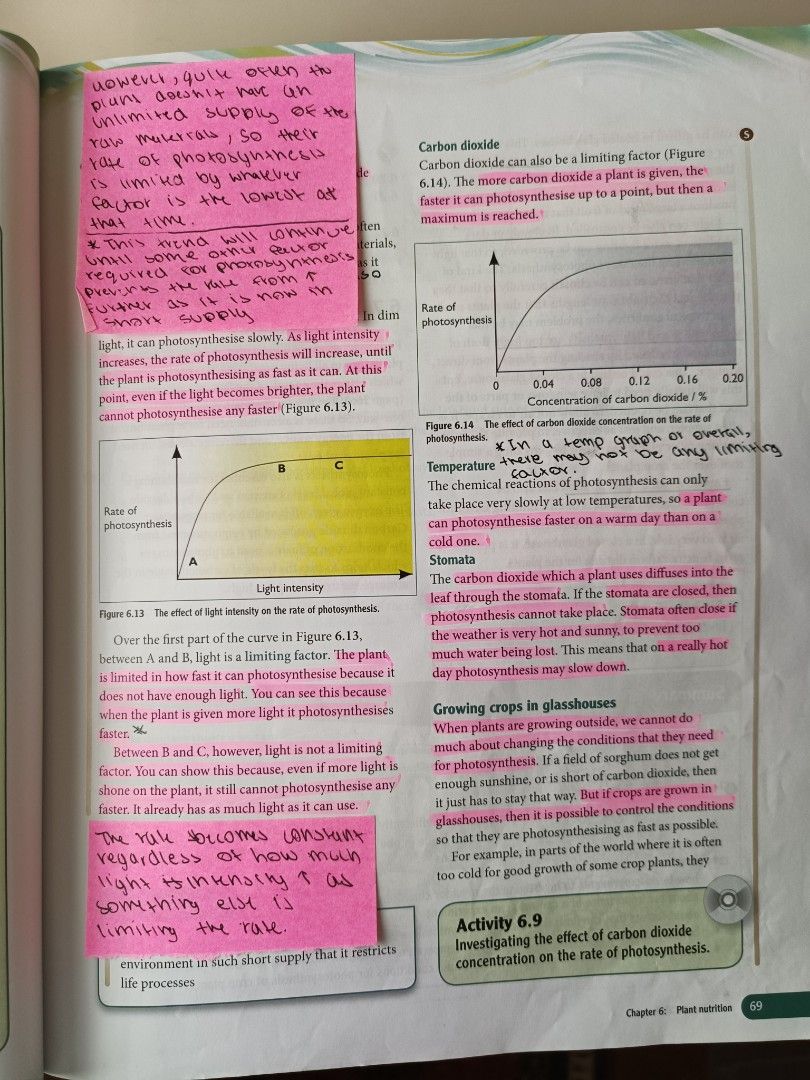 However, quite often the
plant doesn't have an
unlimited supply of the
raw materials, so their
rate of photosynthesis
is limited by whatever
factor is the lowest at
that time.
* This trend will continue
until some other factor
required for photosynthesis
prevents the rate from ↑
further as it is now in
short supply
de
ften
terials,
as it
so
In dim
light, it can photosynthesise slowly. As light intensity
increases, the rate of photosynthesis will increase, until
the plant is photosynthesising as fast as it can. At this
point, even if the light becomes brighter, the plant
cannot photosynthesise any faster (Figure 6.13).
Rate of
photosynthesis
A
B
C
Light intensity
Figure 6.13 The effect of light intensity on the rate of photosynthesis.
Over the first part of the curve in Figure 6.13,
between A and B, light is a limiting factor. The plant
is limited in how fast it can photosynthesise because it
does not have enough light. You can see this because
when the plant is given more light it photosynthesises
faster. *
Between B and C, however, light is not a limiting
factor. You can show this because, even if more light is
shone on the plant, it still cannot photosynthesise any
faster. It already has as much light as it can use.
The rate becomes constant
regardless of how much
light is intensity ↑ as
something else is
limiting the rate.
environment in such short supply that it restricts
life processes
S
Carbon dioxide
Carbon dioxide can also be a limiting factor (Figure
6.14). The more carbon dioxide a plant is given, the
faster it can photosynthesise up to a point, but then a
maximum is reached.
Rate of
photosynthesis
0 0.04 0.08 0.12 0.16 0.20
Concentration of carbon dioxide / %
Figure 6.14 The effect of carbon dioxide concentration on the rate of
photosynthesis.
* In a temp graph or overall,
there may not be any limiting
factor.
Temperature
The chemical reactions of photosynthesis can only
take place very slowly at low temperatures, so a plant
can photosynthesise faster on a warm day than on a
cold one.
Stomata
The carbon dioxide which a plant uses diffuses into the
leaf through the stomata. If the stomata are closed, then
photosynthesis cannot take place. Stomata often close if
the weather is very hot and sunny, to prevent too
much water being lost. This means that on a really hot
day photosynthesis may slow down.
Growing crops in glasshouses
When plants are growing outside, we cannot do
much about changing the conditions that they need
for photosynthesis. If a field of sorghum does not get
enough sunshine, or is short of carbon dioxide, then
it just has to stay that way. But if crops are grown in
glasshouses, then it is possible to control the conditions
so that they are photosynthesising as fast as possible.
For example, in parts of the world where it is often
too cold for good growth of some crop plants, they
Activity 6.9
Investigating the effect of carbon dioxide
concentration on the rate of photosynthesis.
Chapter 6: Plant nutrition 69